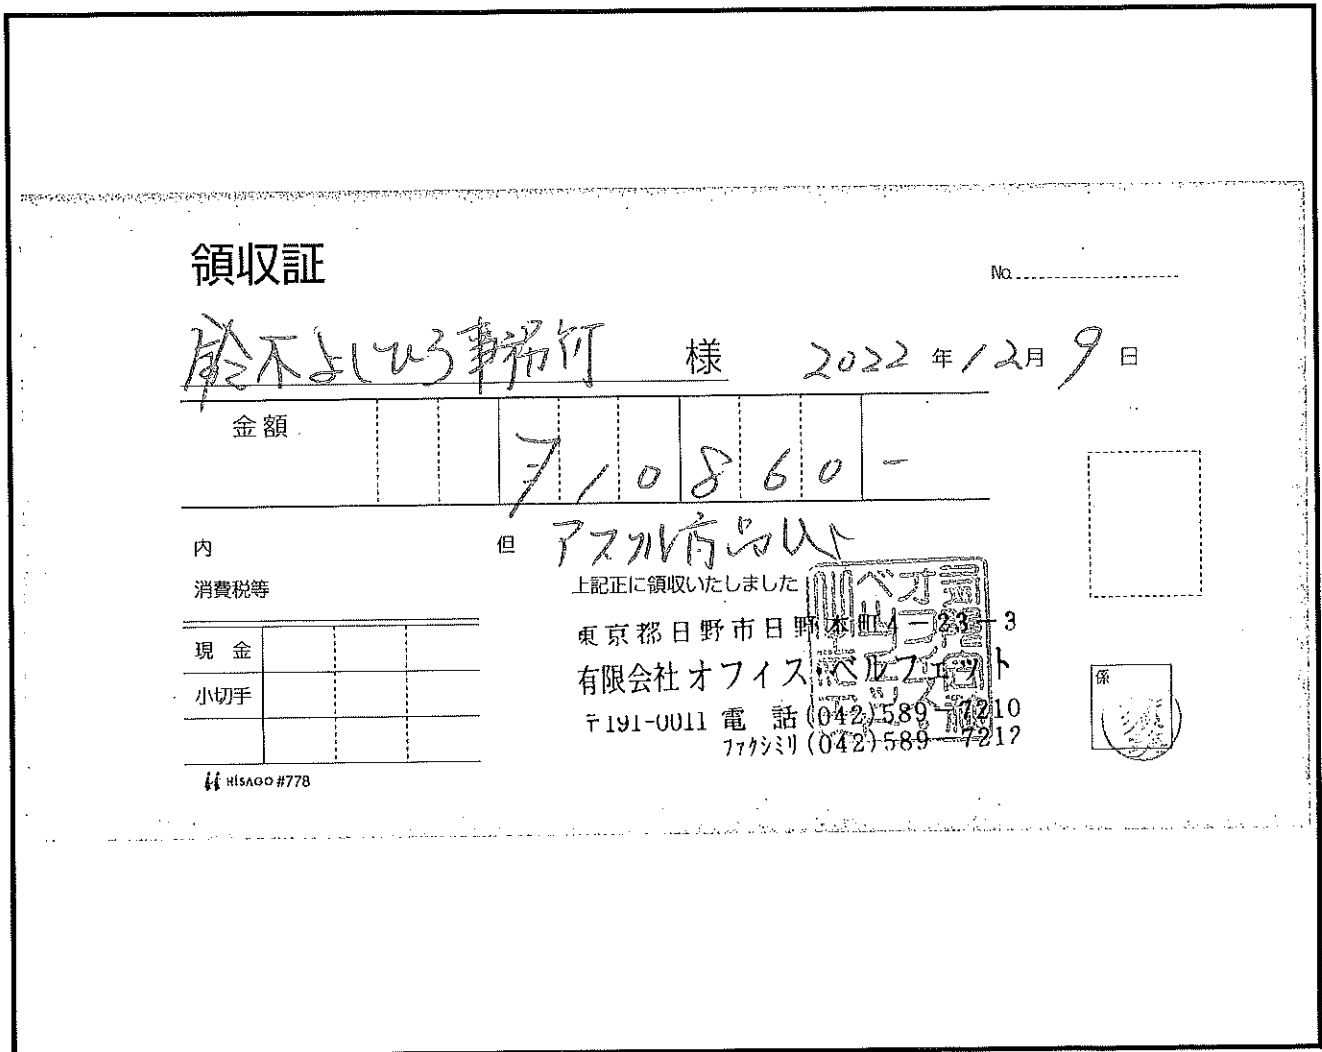 領収証
No.
鈴木よしひろ事務所 様 2022年12月9日
金額 ¥10860-
内
但 アスクル商品代
消費税等
上記正に領収いたしました
東京都日野市日野本町4-23-3
有限会社オフィス・ベルフェット
〒191-0011 電 話(042)589-7210
ファクシミリ(042)589-7217
現 金
小切手
係
HISAGO #778